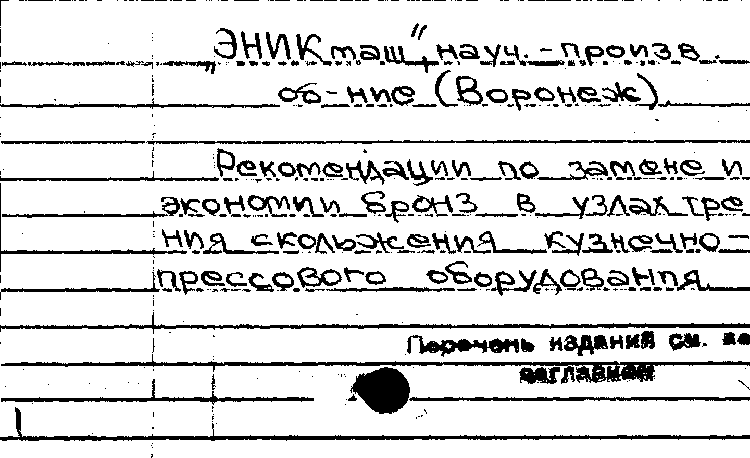 „ЭНИКмаш", науч.-произв.
об-ние (Воронеж).
Рекомендации по замене и
экономии бронз в узлах тре
ния скольжения кузнечно-
прессового оборудования.
Перечень издания см. на
заглавном